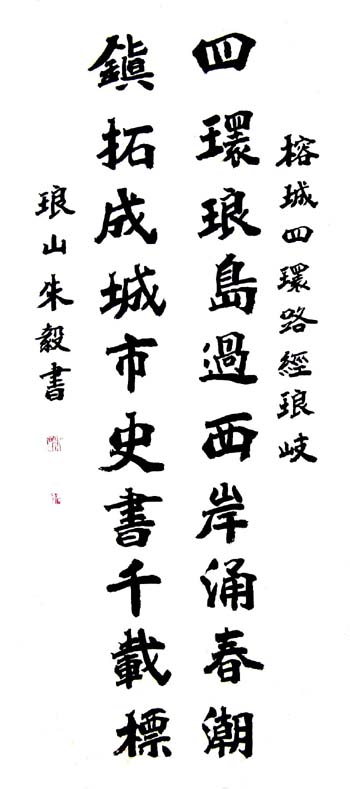 榕城四環路經琅岐
四環琅島過西岸涌春潮
鎮拓成城市史書千載標
琅山朱毅書